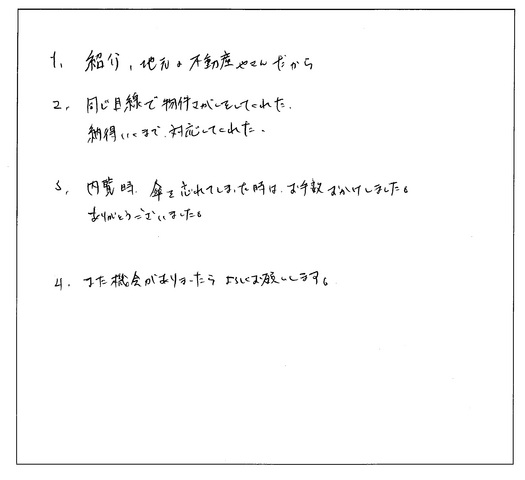 1, 紹介, 地元の不動産やさんだから
2, 同じ目線で物件さがしをしてくれた.
納得いくまで対応してくれた.
3, 内覧時. 傘を忘れてしまった時は. お手数おかけしました。
ありがとうございました。
4. また機会がありましたらよろしくお願いします。